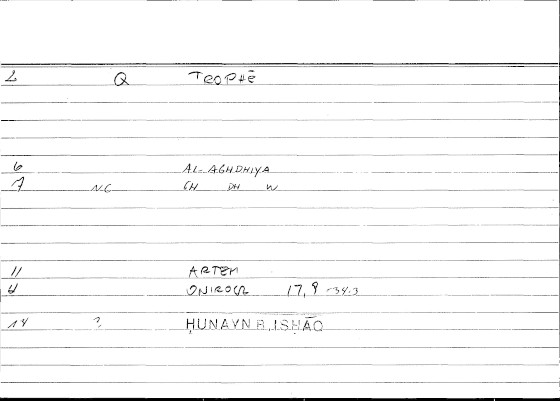 2 Q TROPHĒ
6 AL-AGHDHIYA
7 NC GH DH W
11 ARTEM
4 ONIROCR 17,9 -34.3
14 ? ḤUNAYN B. ISḤĀQ